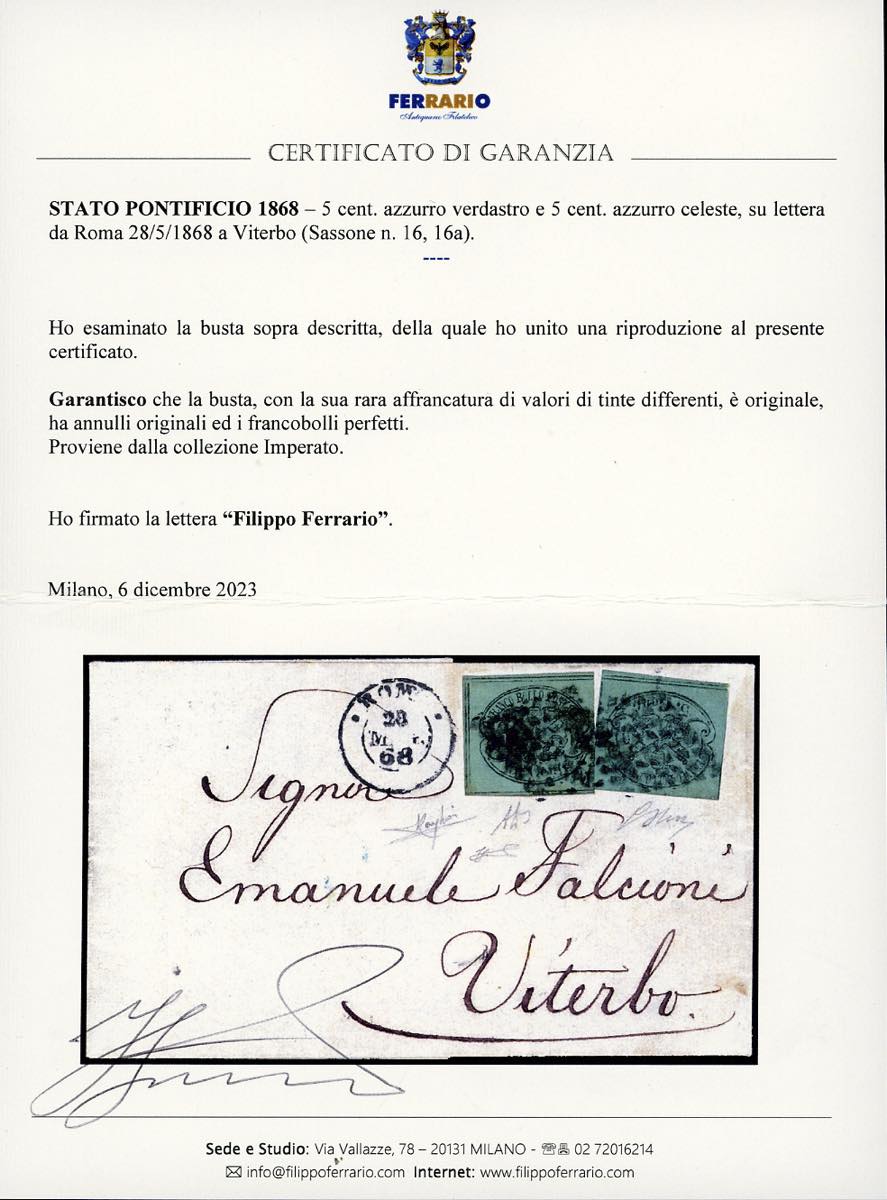 FERRARIO
Antiquario Filatelico
CERTIFICATO DI GARANZIA
STATO PONTIFICIO 1868 – 5 cent. azzurro verdastro e 5 cent. azzurro celeste, su lettera
da Roma 28/5/1868 a Viterbo (Sassone n. 16, 16a).
----
Ho esaminato la busta sopra descritta, della quale ho unito una riproduzione al presente
certificato.
Garantisco che la busta, con la sua rara affrancatura di valori di tinte differenti, è originale,
ha annulli originali ed i francobolli perfetti.
Proviene dalla collezione Imperato.
Ho firmato la lettera “Filippo Ferrario”.
Milano, 6 dicembre 2023
ROMA
28
68
FRANCO BOLLO
Signor
Emanuele Falcioni
Viterbo.
Sede e Studio: Via Vallazze, 78 – 20131 MILANO - ☏ 02 72016214
✉ info@filippoferrario.com Internet: www.filippoferrario.com